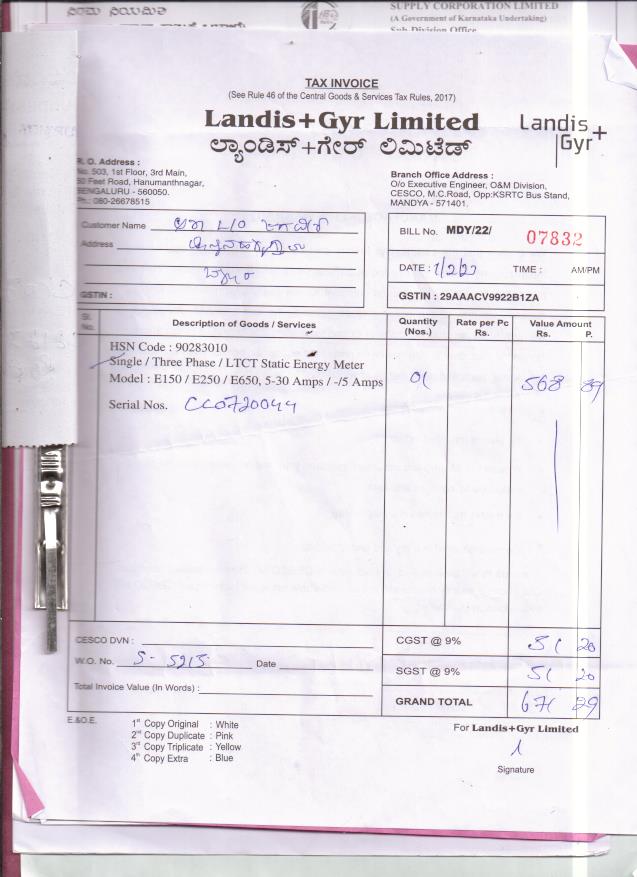 SUPPLY CORPORATION LIMITED
(A Government of Karnataka Undertaking)
Sub Division Office
TAX INVOICE
(See Rule 46 of the Central Goods & Services Tax Rules, 2017)
Landis+Gyr Limited
Landis+
Gyr
ಲ್ಯಾಂಡಿಸ್+ಗೇರ್ ಲಿಮಿಟೆಡ್
R. O. Address :
No. 503, 1st Floor, 3rd Main,
80 Feet Road, Hanumanthnagar,
BENGALURU - 560050.
Ph.: 080-26678515
Branch Office Address :
O/o Executive Engineer, O&M Division,
CESCO, M.C.Road, Opp:KSRTC Bus Stand,
MANDYA - 571401.
Customer Name
Address
GSTIN :
BILL No. MDY/22/ 07832
DATE : 1/2/22 TIME : AM/PM
GSTIN : 29AAACV9922B1ZA
Sl. No. Description of Goods / Services Quantity (Nos.) Rate per Pc Rs. Value Amount Rs. P.
HSN Code : 90283010
Single / Three Phase / LTCT Static Energy Meter
Model : E150 / E250 / E650, 5-30 Amps / -/5 Amps 01 568 89
Serial Nos. CC0720044
CESCO DVN :
CGST @ 9% 51 20
W.O. No. S- 5915 Date
SGST @ 9% 51 20
Total Invoice Value (In Words) :
GRAND TOTAL 671 29
E.&O.E.
1st Copy Original : White
2nd Copy Duplicate : Pink
3rd Copy Triplicate : Yellow
4th Copy Extra : Blue
For Landis+Gyr Limited
Signature